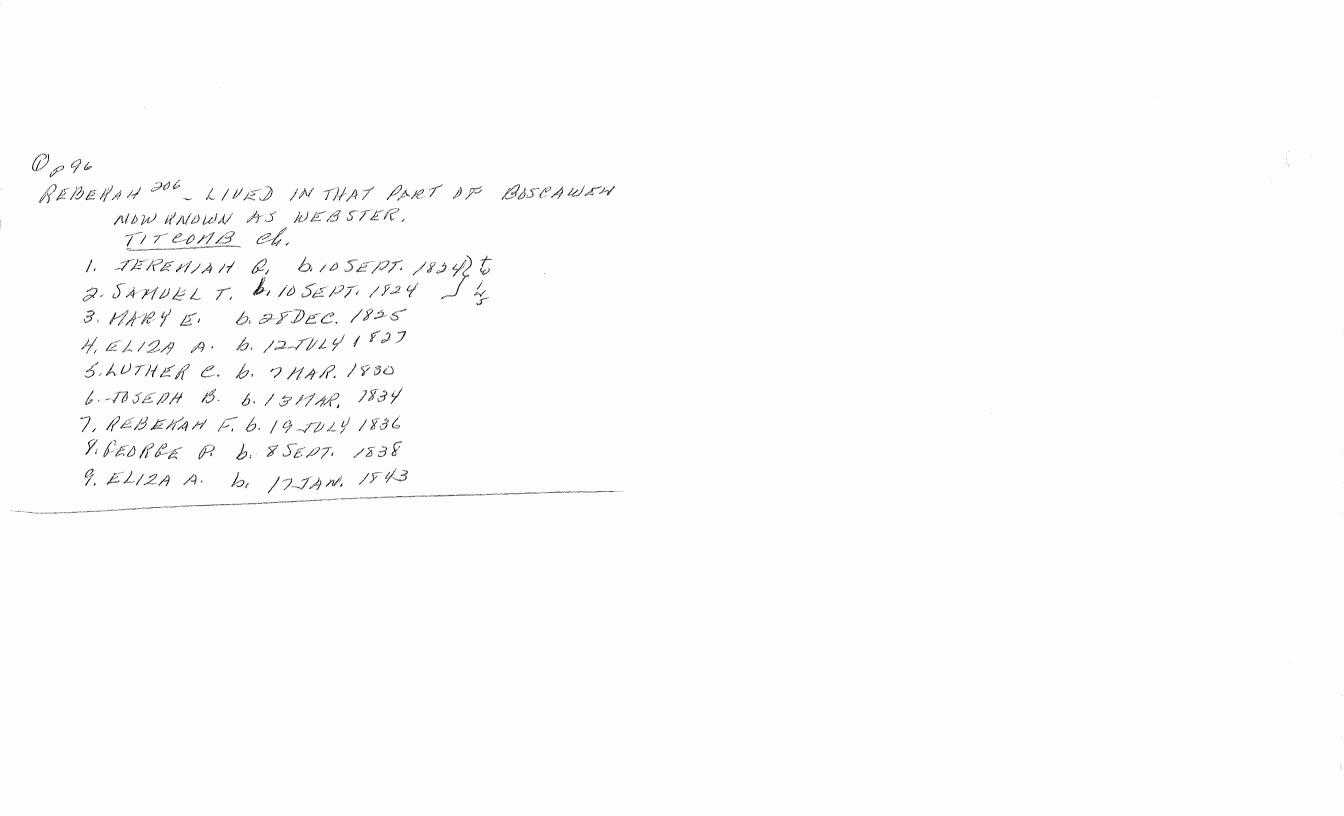 ① p 96
REBEKAH 206 - LIVED IN THAT PART OF BOSCAWEN
NOW KNOWN AS WEBSTER.
TITCOMB Ch.
1. JEREMIAH b. 10 SEPT. 1824
2. SAMUEL T. b. 10 SEPT. 1824
3. MARY E. b. 28 DEC. 1825
4. ELIZA A. b. 12 JULY 1827
5. LUTHER C. b. 7 MAR. 1830
6. JOSEPH B. b. 13 MAR. 1834
7. REBEKAH F. b. 19 JULY 1836
8. GEORGE P. b. 8 SEPT. 1838
9. ELIZA A. b. 17 JAN. 1843